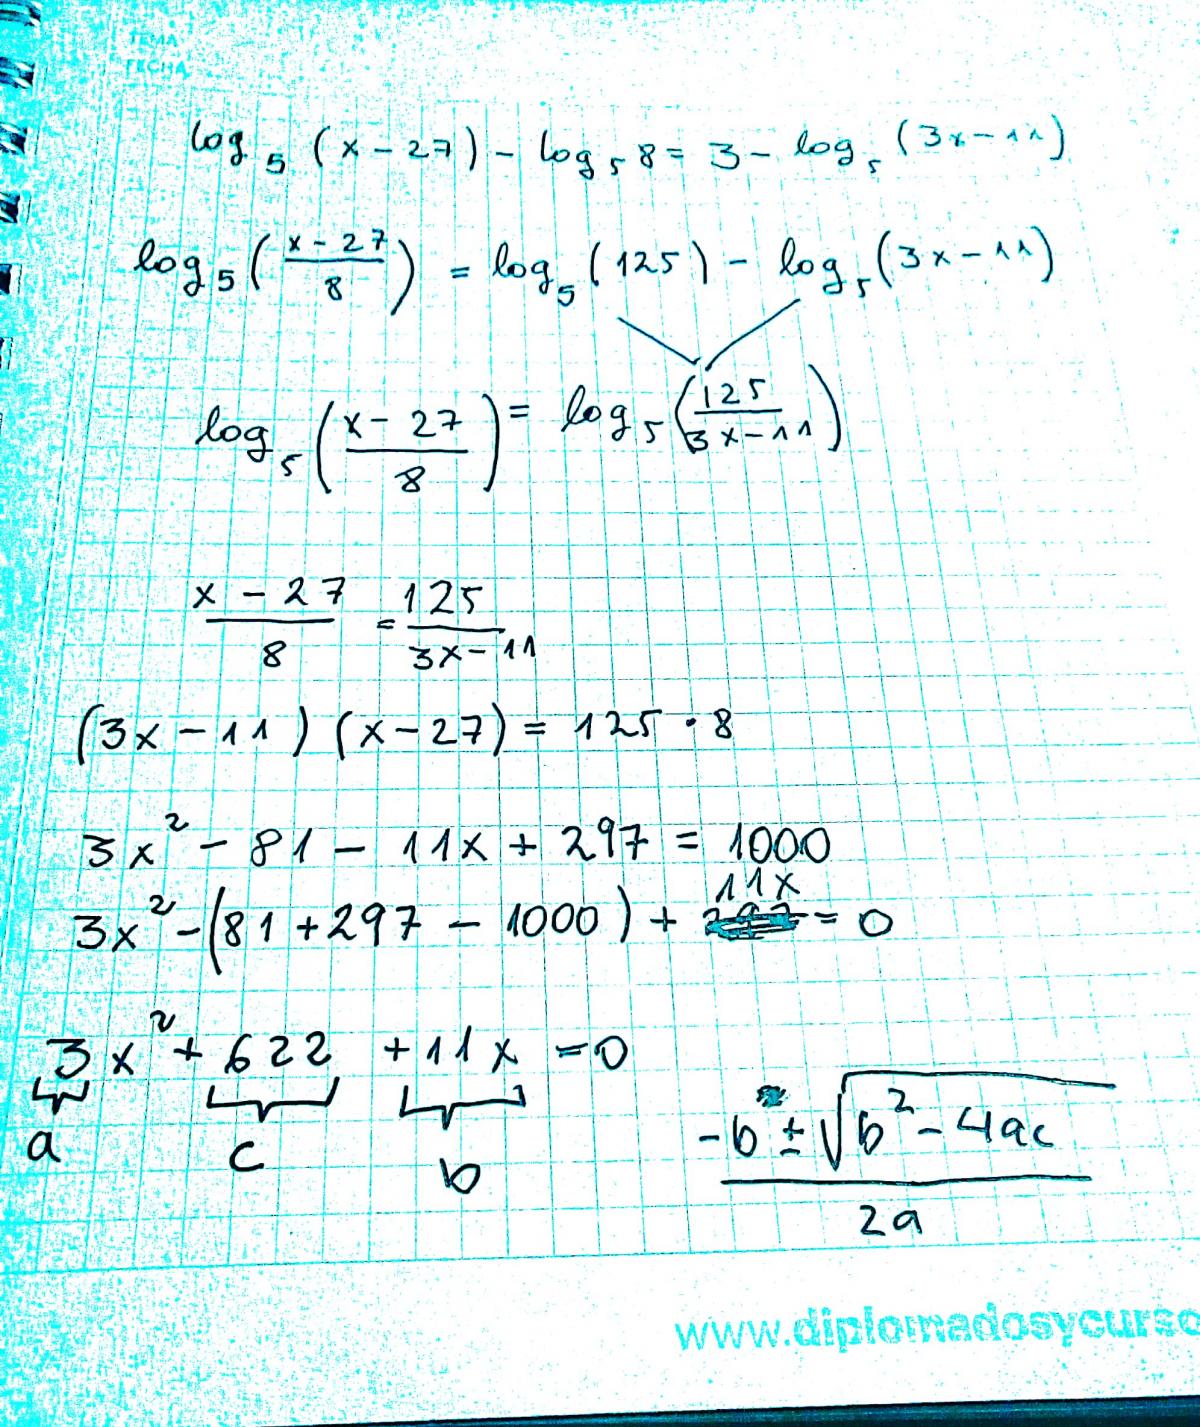 TEMA
FECHA
log₅ (x − 27) − log₅ 8 = 3 − log₅ (3x − 11)
log₅ ((x − 27)/8) = log₅ (125) − log₅ (3x − 11)
log₅ ((x − 27)/8) = log₅ (125/(3x − 11))
(x − 27)/8 = 125/(3x − 11)
(3x − 11) (x − 27) = 125 · 8
3x² − 81 − 11x + 297 = 1000
3x² − (81 + 297 − 1000) + 11x = 0
3x² + 622 + 11x = 0
a c b
(−b ± √(b² − 4ac))/2a
www.diplomadosycurso